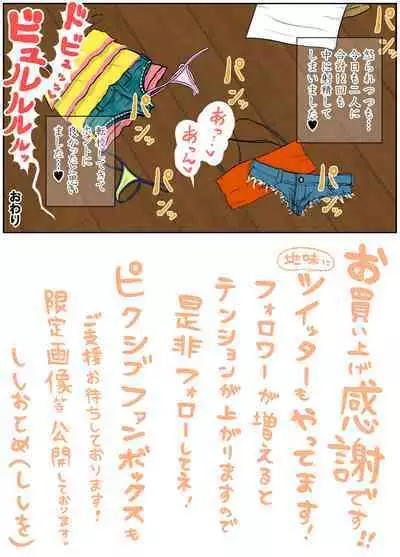 怒られつつも…
今日も二人に
合計12回も
中に射精して
しまいました♥
パンッ
パンッ
パンッ
パンッ
パンッ
あっ…♥
あっん♥
ドビュッ
ビュルルルルッ
転校してきて
ホントに
良かったと思い
ました…♥
おわり
お買い上げ感謝です!!
地味に
ツイッターもやってます!
フォロワーが増えると
テンションが上がりますので
是非フォローしてネ!
ピクシブファンボックスも
ご支援お待ちしております!
限定画像等公開しております!!
ししおとめ(ししを)